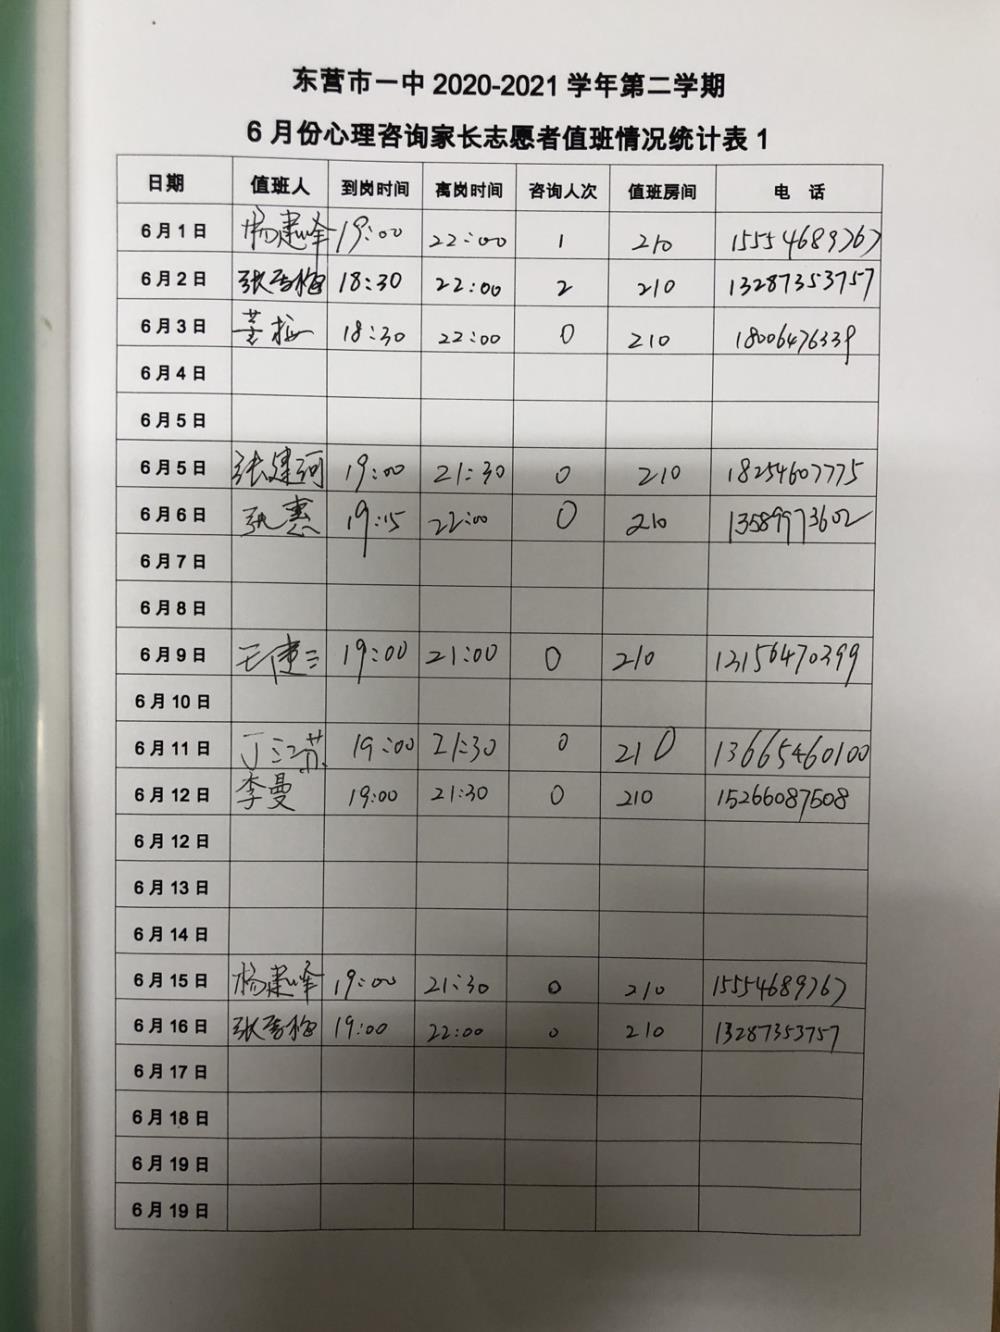 东营市一中 2020-2021 学年第二学期
6 月份心理咨询家长志愿者值班情况统计表 1
日期 值班人 到岗时间 离岗时间 咨询人次 值班房间 电 话
6 月 1 日 杨建峰 19:00 22:00 1 210 15554689767
6 月 2 日 张香梅 18:30 22:00 2 210 13287353757
6 月 3 日 董梅 18:30 22:00 0 210 18006476339
6 月 4 日
6 月 5 日
6 月 5 日 张建河 19:00 21:30 0 210 18254607775
6 月 6 日 张惠 19:15 22:00 0 210 13589973602
6 月 7 日
6 月 8 日
6 月 9 日 王建三 19:00 21:00 0 210 13156470399
6 月 10 日
6 月 11 日 丁江苏 19:00 21:30 0 210 13665460100
6 月 12 日 李曼 19:00 21:30 0 210 15266087508
6 月 12 日
6 月 13 日
6 月 14 日
6 月 15 日 杨建峰 19:00 21:30 0 210 15554689767
6 月 16 日 张香梅 19:00 22:00 0 210 13287353757
6 月 17 日
6 月 18 日
6 月 19 日
6 月 19 日